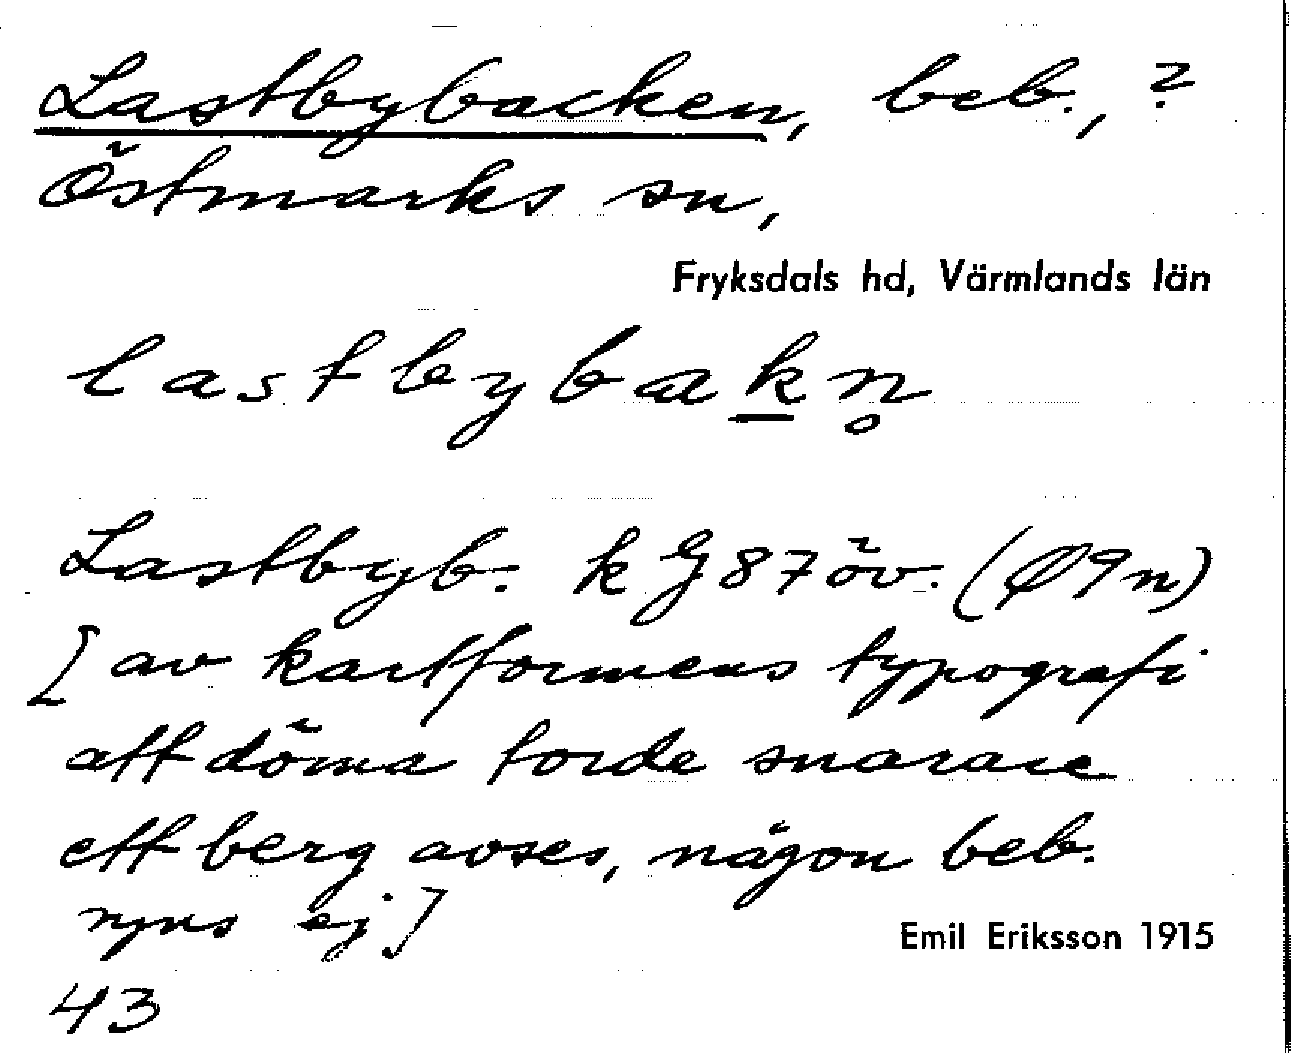 Lastbybacken, beb., ?
Östmarks sn,
Fryksdals hd, Värmlands län
lastbybakn̥
Lastbyb. k G87öv. (Ø9n)
[av kartformens typografi
att döma torde snarare
ett berg avses, någon beb.
nyns ej]
Emil Eriksson 1915
43